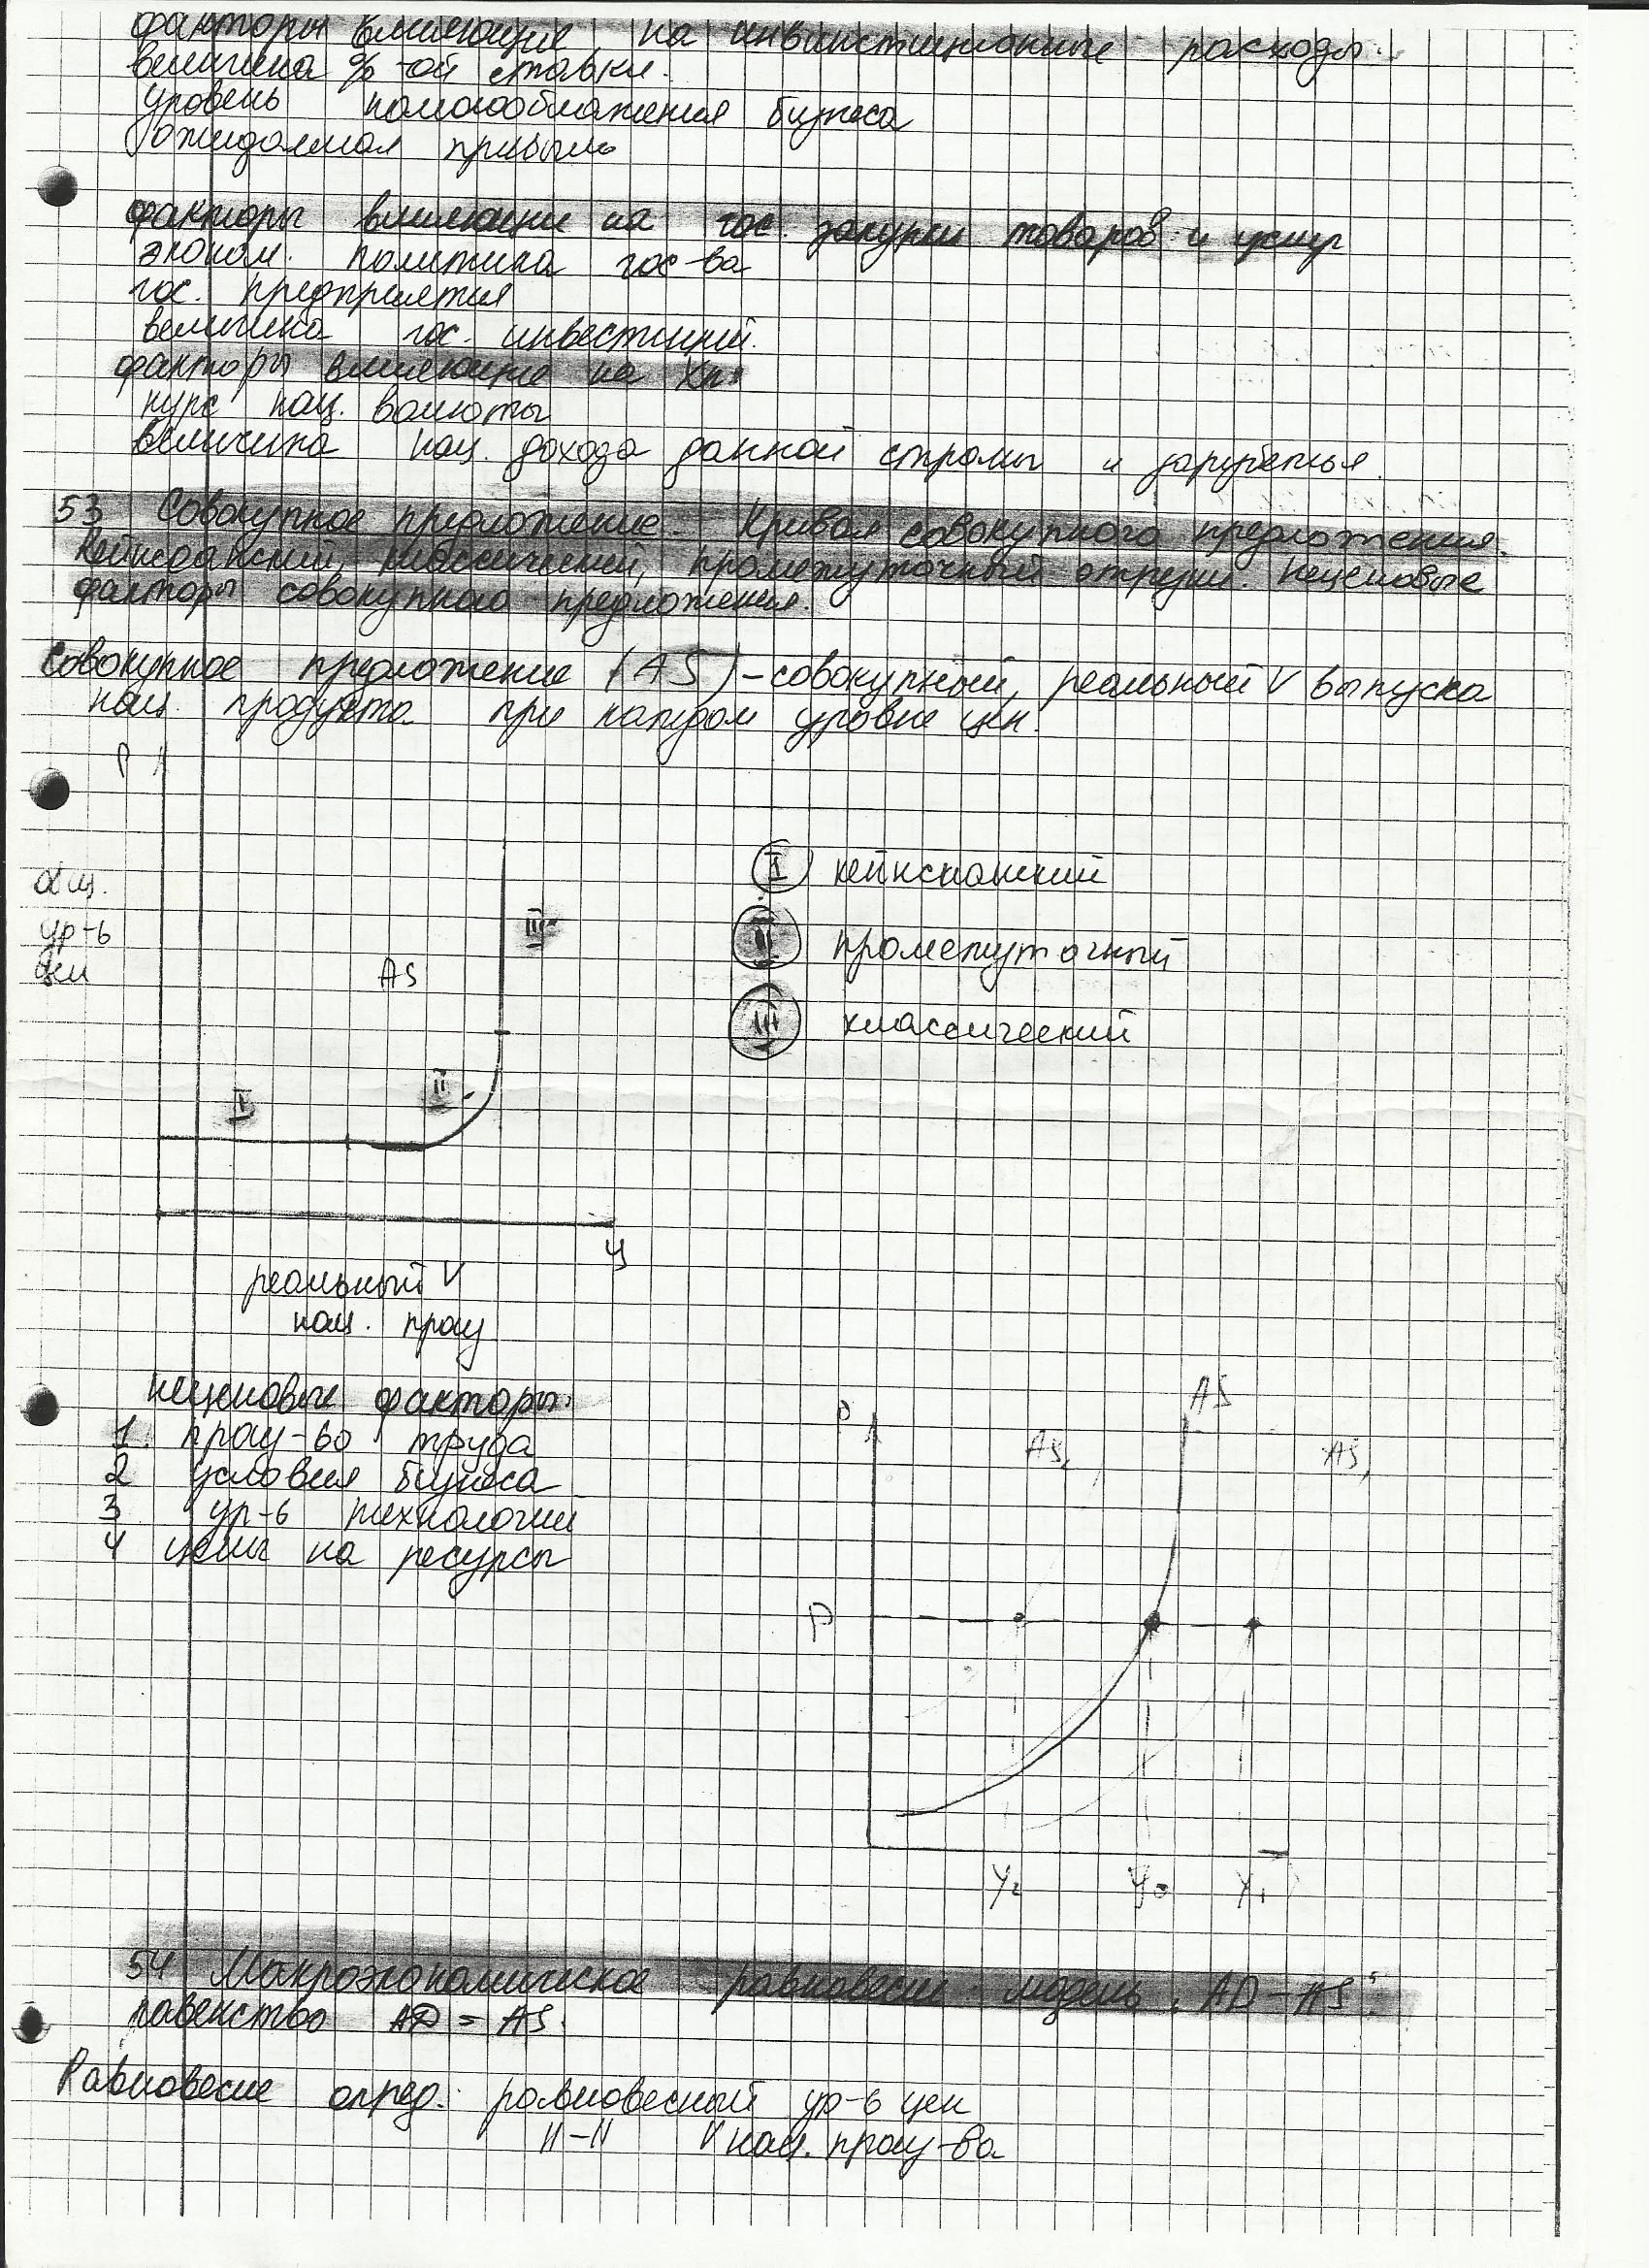 факторы влияющие на инвинстиционные расходы.
величина %-ой ставки.
уровень налогообложения бизнеса
ожидаемая прибыль
факторы влияющие на гос. закупки товаров и услуг
эконом. политика гос-ва
гос. предприятия
величина гос. инвестиций.
факторы влияющие на Xn
курс нац. валюты
величина нац. дохода данной страны и зарубежья.
53 Совокупное предложение. Кривая совокупного предложения.
Кейнсианский, классический, промежуточный отрезки. Неценовые
факторы совокупного предложения.
Совокупное предложение (AS) – совокупный, реальный V выпуска
нац. продукта при каждом уровне цен.
P
общ.
ур-ь
цен
AS
I
II
III
Y
реальный V
нац. прод
I кейнсианский
II промежуточный
III классический
неценовые факторы:
1. прод-во труда
2 условия бизнеса
3 ур-ь технологий
4 цены на ресурсы
P
AS
AS₂
AS₁
P
Y₂ Y₀ Y₁
54 Макроэкономическое равновесие. модель "AD – AS".
равенство AD = AS.
Равновесие опред: равновесный ур-ь цен
11–11 V нац. прод-ва